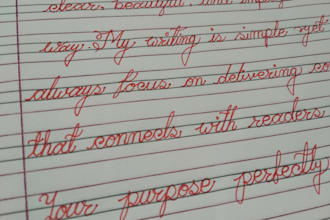 clear, beautiful, and
way. My writing is simple yet
always focus on delivering co
that connects with readers
Your purpose perfectly